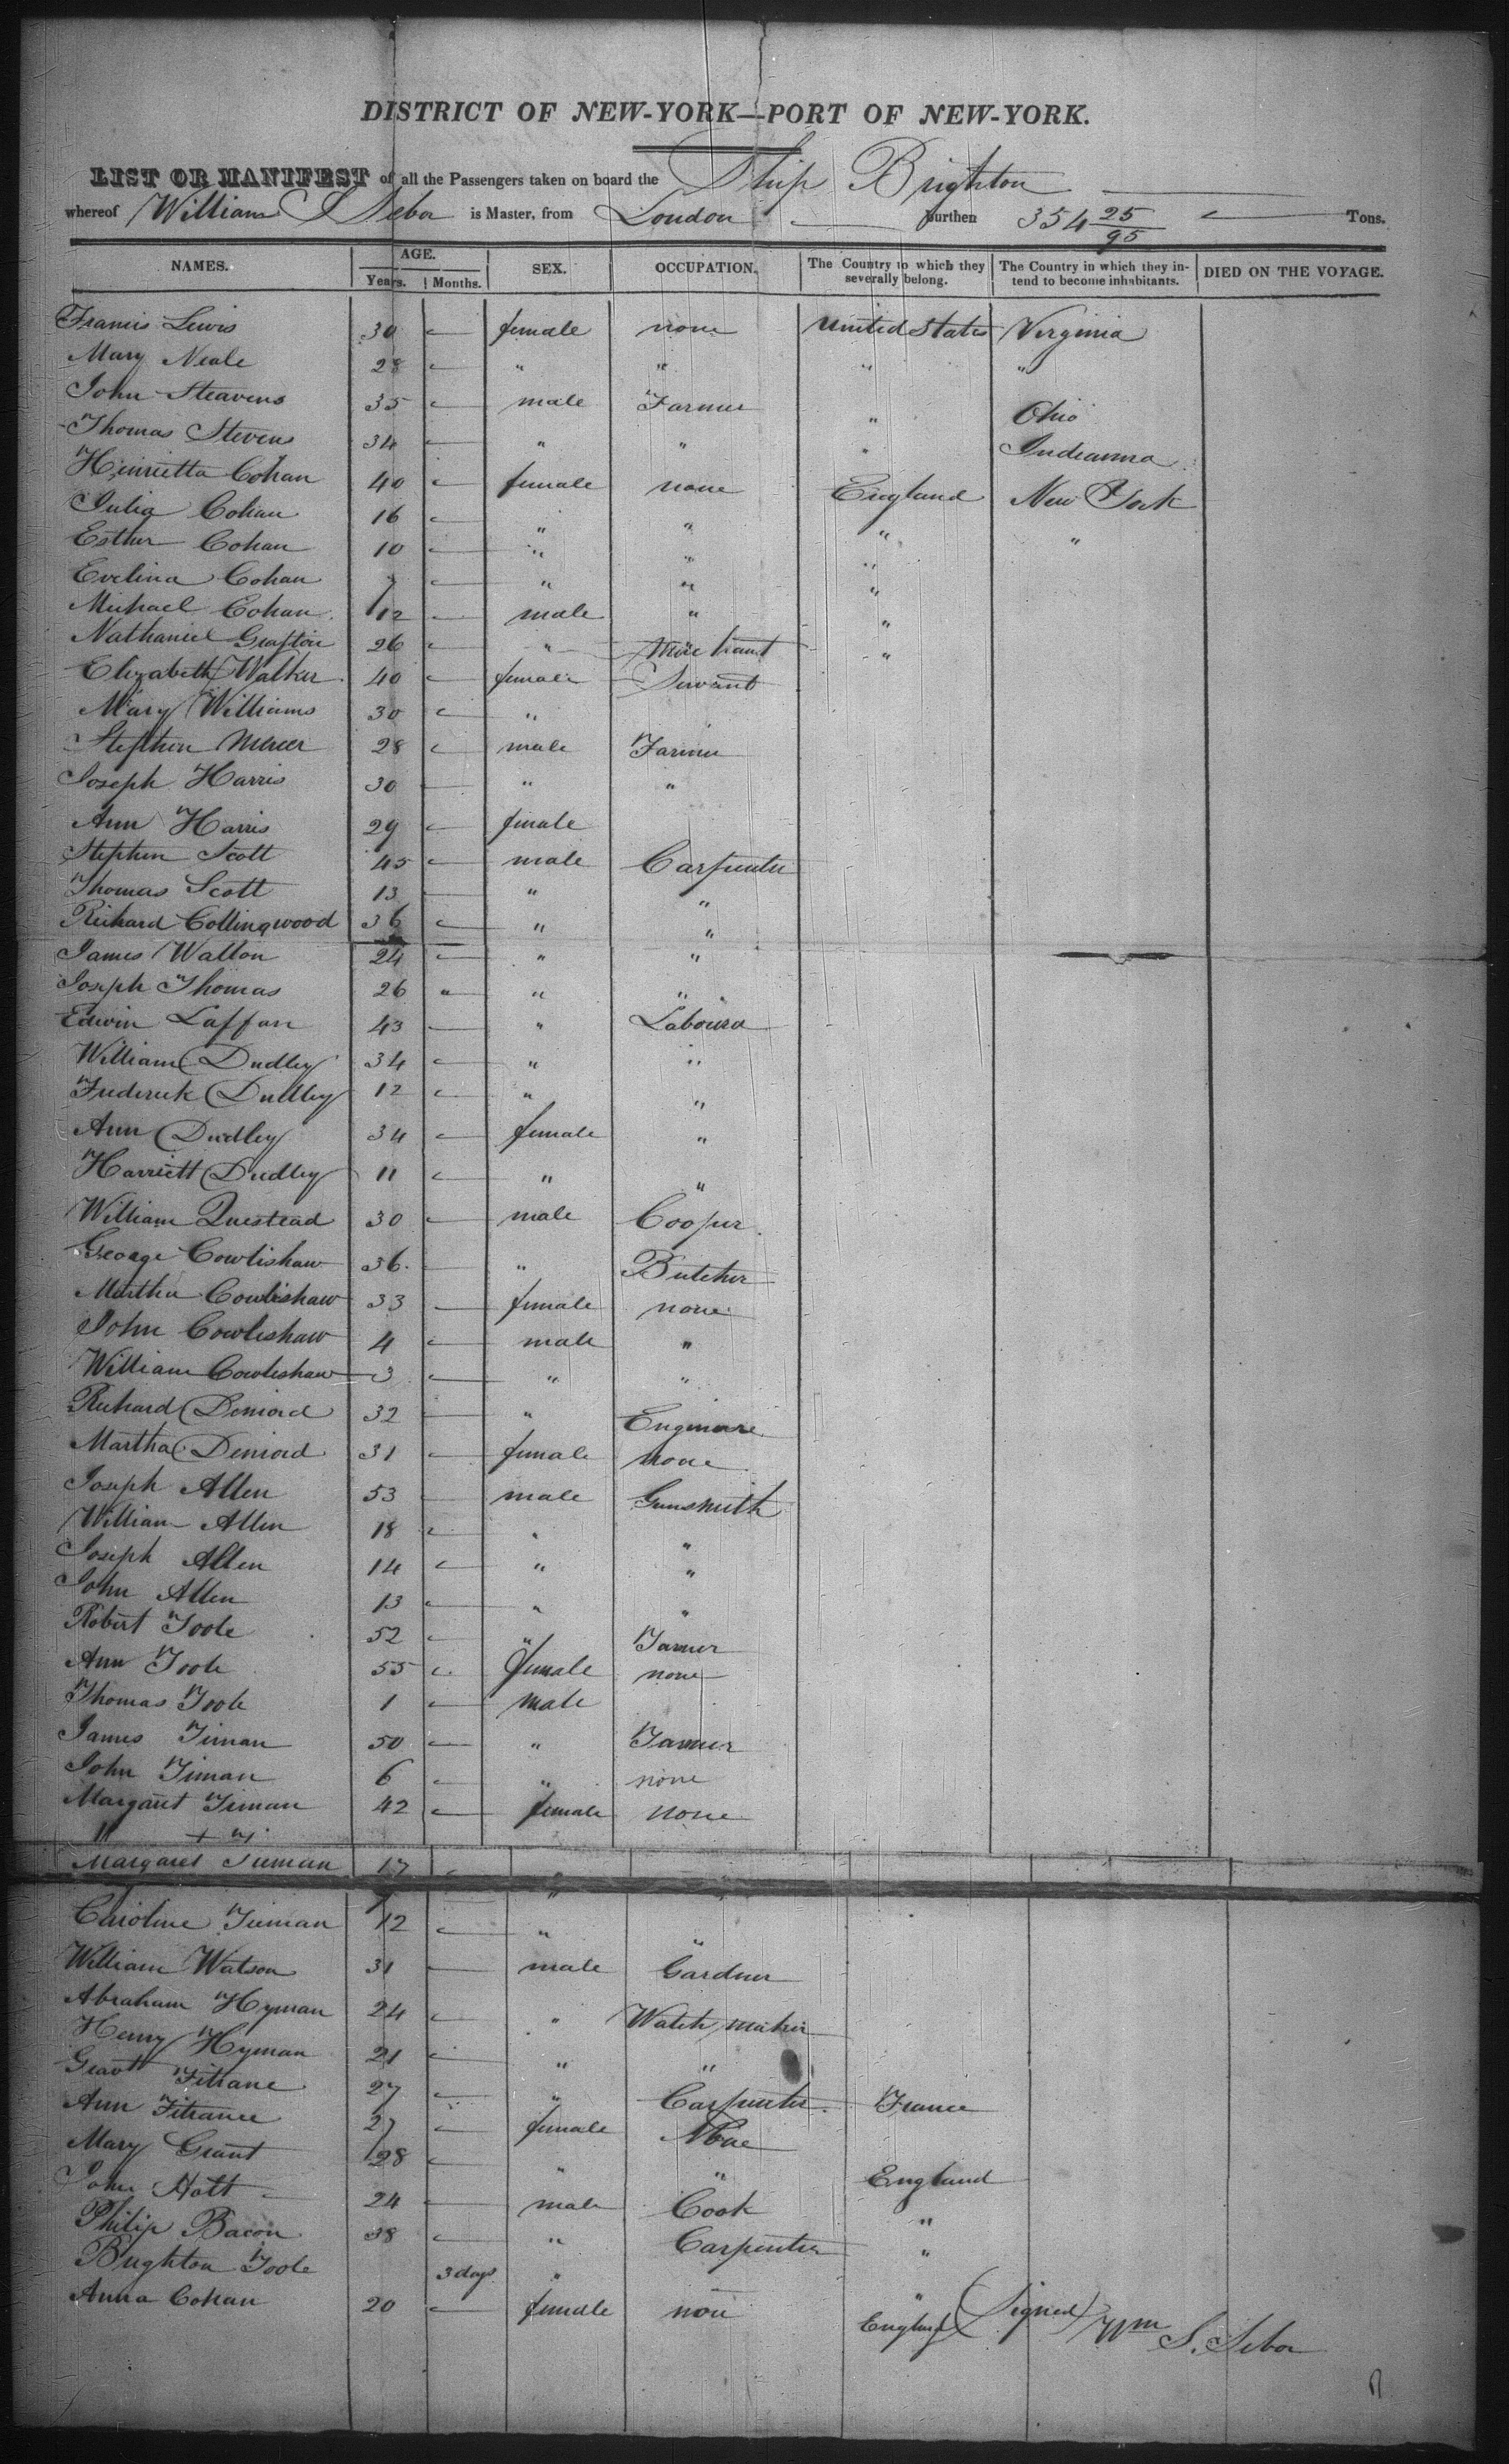 DISTRICT OF NEW-YORK—PORT OF NEW-YORK.
LIST OR MANIFEST of all the Passengers taken on board the Ship Brighton
whereof William S Sebor is Master, from London burthen 354 25/95 Tons.
NAMES. AGE. SEX. OCCUPATION. The Country to which they severally belong. The Country in which they intend to become inhabitants. DIED ON THE VOYAGE.
Years. Months.
Francis Lewis 30 female none United States Virginia
Mary Neale 28 " " " "
John Steavens 35 male Farmer " Ohio
Thomas Stevens 34 " " " Indeanna
Henrietta Cohan 40 female none England New York
Julia Cohan 16 " " " "
Esther Cohan 10 " " "
Evelina Cohan 7 " " "
Michael Cohan 12 male " "
Nathaniel Grafton 26 " Merchant "
Elizabeth Walker 40 female Servant
Mary Williams 30 "
Stephen Mercer 28 male Farmer
Joseph Harris 30 " "
Ann Harris 29 female
Stephen Scott 45 male Carpenter
Thomas Scott 13 " "
Richard Collingwood 36 " "
James Walton 24 " "
Joseph Thomas 26 " " "
Edwin Laffan 43 " Labourer
William Dudley 34 " "
Frederick Dudley 12 " "
Ann Dudley 34 female "
Harriett Dudley 11 " "
William Questead 30 male Cooper
George Cowlishaw 36 " Butcher
Martha Cowlishaw 33 female none
John Cowlishaw 4 male "
William Cowlishaw 3 " "
Richard Deniord 32 " Engineere
Martha Deniord 31 female none
Joseph Allen 53 male Gunsmith
William Allen 18 " "
Joseph Allen 14 " "
John Allen 13 " "
Robert Toole 52 " Farmer
Ann Toole 55 female none
Thomas Toole 1 male
James Timan 50 " Farmer
John Timan 6 " none
Margaret Timan 42 female none
Margaret Tieman 17 "
Caroline Tieman 12 " "
William Watson 31 male Gardner
Abraham Hyman 24 " Watch maker
Henry Hyman 21 " "
Grant 27 " Carpenter France
Ann 27 female None
Mary Grant 28 " " England
John Hott 24 male Cook "
Philip Bacon 38 " Carpenter "
Brighton Toole 3 days " "
Anna Cohan 20 female non England
(Signed) Wm S. Sebor